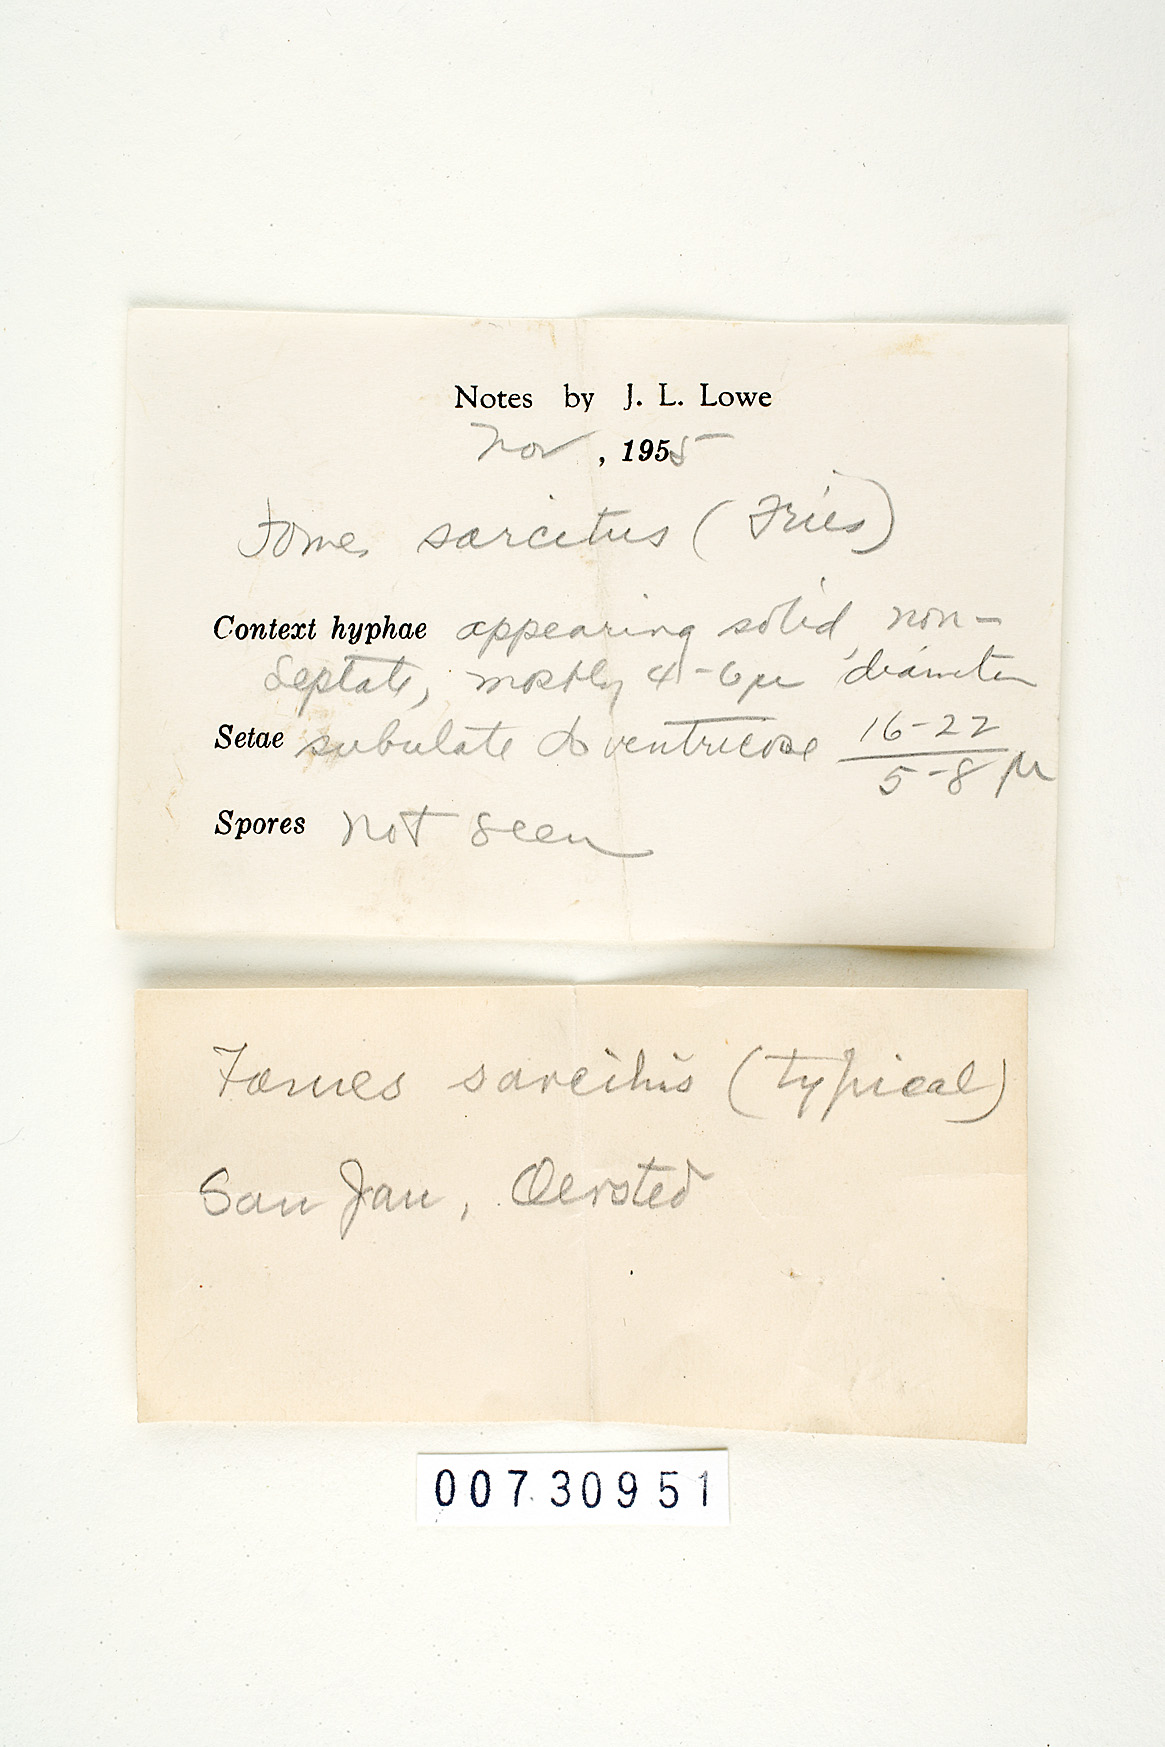 Notes by J. L. Lowe
Nov, 1955
Fomes sarcitus (Fries)
Context hyphae appearing solid, non-
septate, mostly 4-6μ diameter
Setae subulate to ventricose 16-22
5-8 μ
Spores not seen
Fomes sarcitus (typical)
San Jan, Oersted
00730951